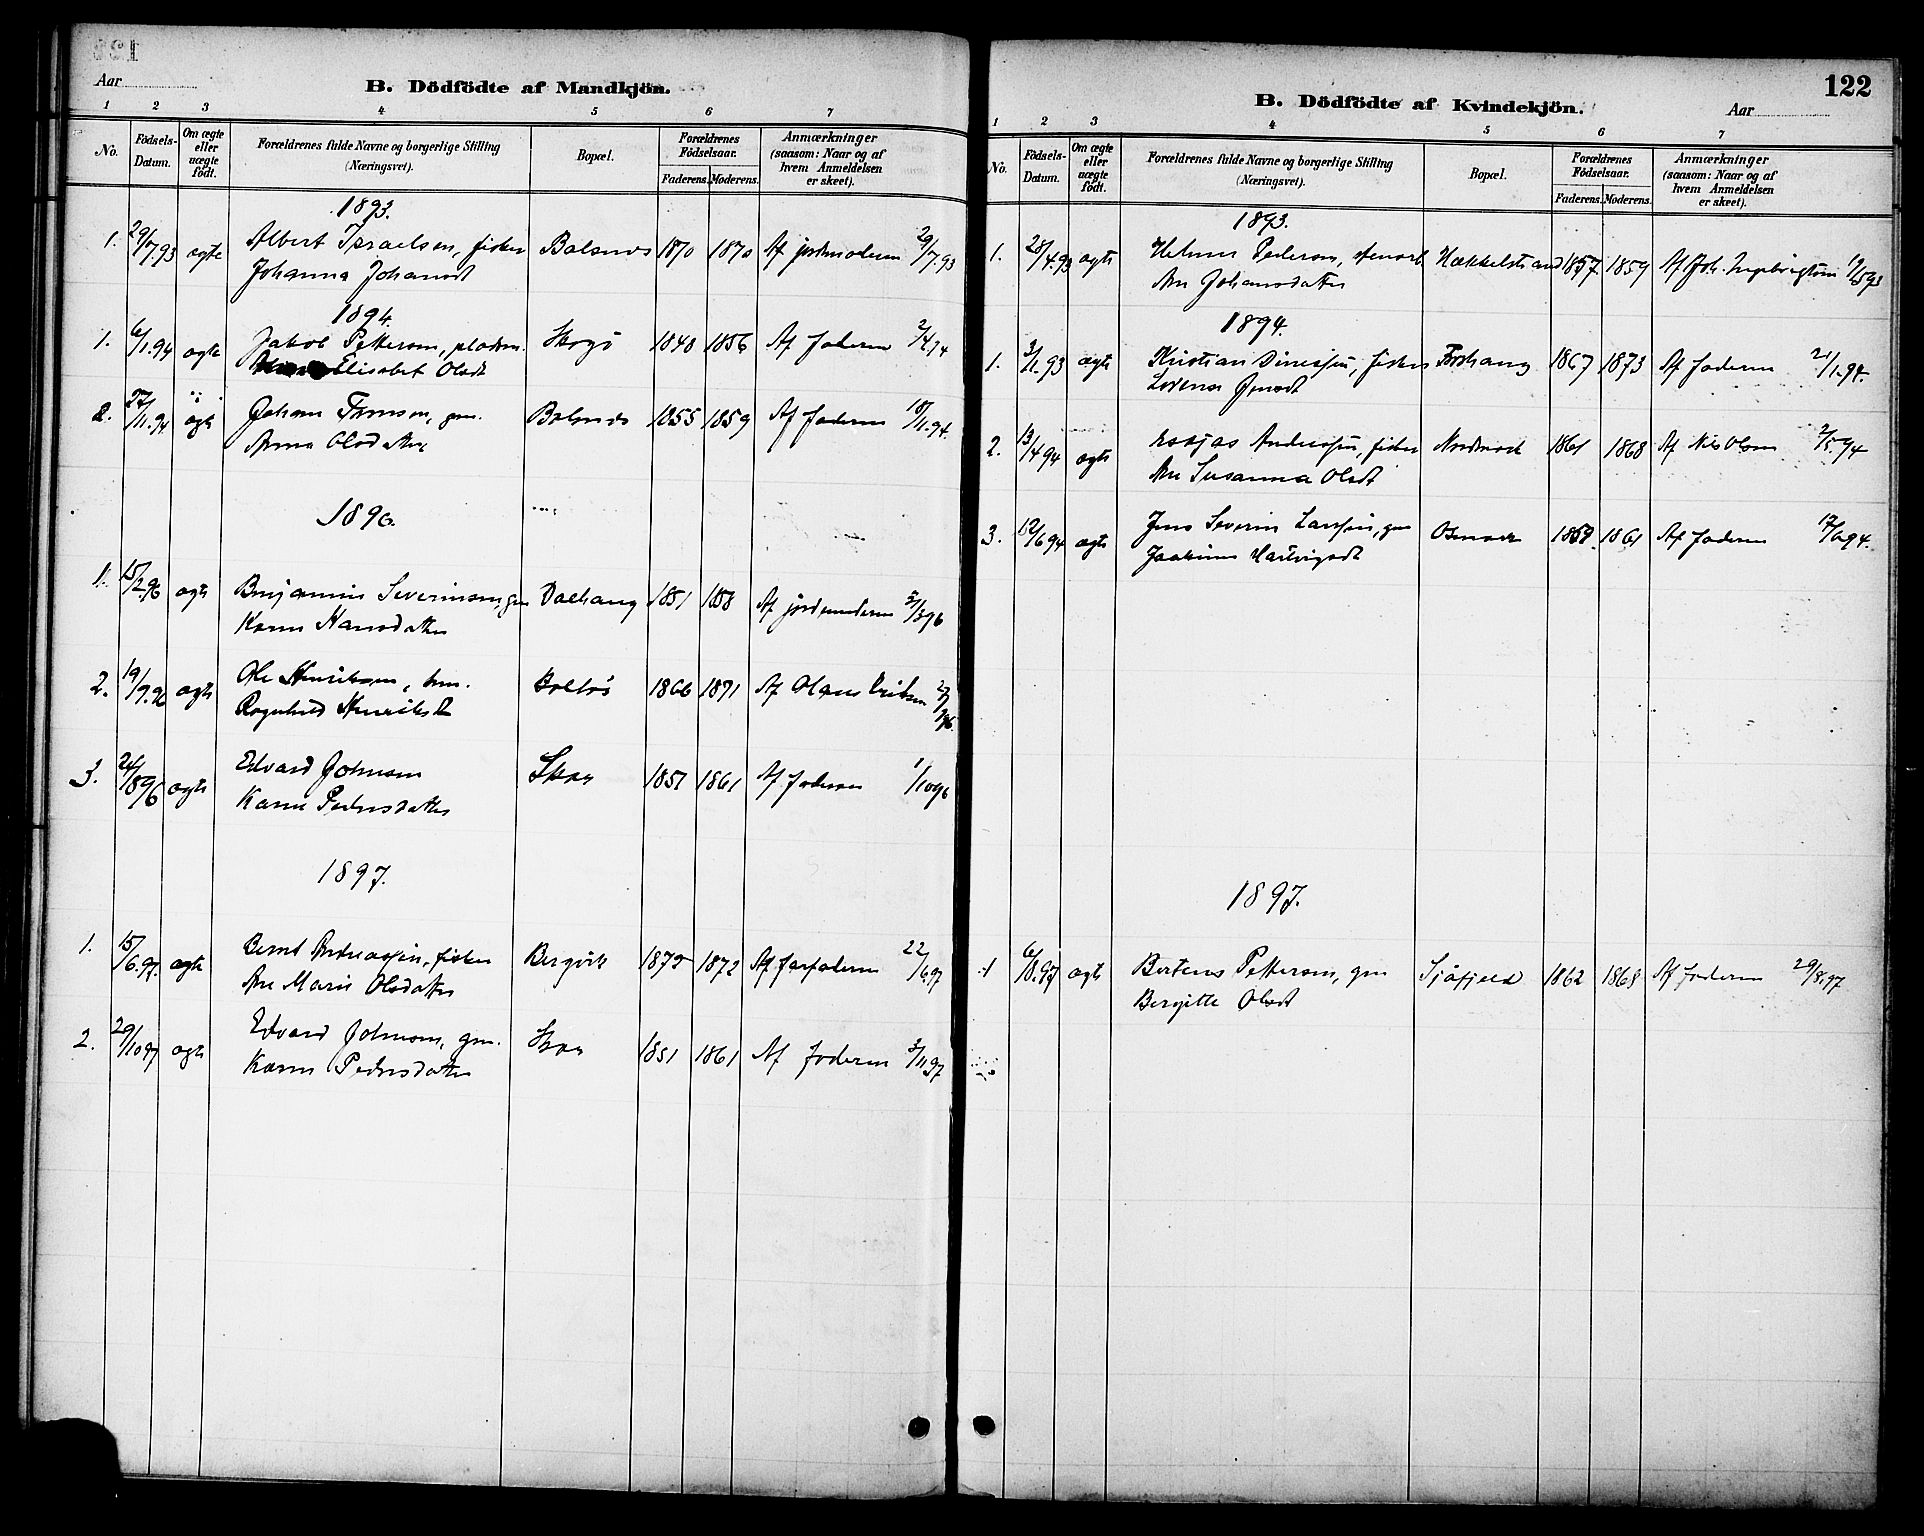 Aar
B. Dödfödte af Mandkjön.
1 2 3 4 5 6 7
No. Födsels-Datum. Om ægte eller uægte födt. Forældrenes fulde Navne og borgerlige Stilling (Næringsvei). Bopæl. Forældrenes Födselsaar. Faderens. Moderens. Anmærkninger (saasom: Naar og af hvem Anmeldelsen er skeet).
1893.
1. 29/7.93 ægte Albert Israelsen, fisker Balsnes 1870 1870 Af jordmoderen 29/7.93
Johanna Johansdt
1894.
1. 6/1.94 ægte Jakob Pettersen, pladsm. Skogö 1848 1856 Af faderen
Elisabet Olsdt
2. 27/11.94 ægte Johan gm. Balsnes 1855 1859 Af faderen 18/11.94.
Anna Olsdatter
1896.
1. 15/2.96 ægte Benjamin Severinsen, gm Dalhaug 1851 1858 Af jordemoderen 5/3 96
Karen Hansdatter
2. 19/7.96 ægte Ole Henriksen, 1866 1871 Af Olaus Eriksen
Ragnhild Henriksdt
3. 24/8 96 ægte Edvard Johnsen Skog 1851 1861 Af faderen 1/10 96
Karen Pedersdatter
1897.
1. 15/6.97. ægte Bernt Andreassen, fisker Bergvik 1872 1872 Af farfaderen 22/6.97
Ane Marie Olsdatter
2. 29/10 97 ægte Edvard Johnsen, gm. Skog 1851 1861 Af faderen 3/11.97
Karen Pedersdatter
122
B. Dödfödte af Kvindekjön.
Aar
1 2 3 4 5 6 7
No. Födsels-Datum. Om ægte eller uægte födt. Forældrenes fulde Navne og borgerlige Stilling (Næringsvei). Bopæl. Forældrenes Födselsaar. Faderens. Moderens. Anmærkninger (saasom: Naar og af hvem Anmeldelsen er skeet).
1893.
1. 28/4.93 ægte Helmer Pedersen, Hækkelstrand 1857 1859 Af Joh. Ingebrigtsen
Ane Johansdatter
1894.
1. 3/11.93 ægte Kristian Dinessen, fisker Forshaug 1867 1873 Af faderen 21/1.94.
Lovensa
2. 13/4 94 ægte Esajas Andreassen, fisker 1861 1868 Af Nils Olsen 2/5.94
Ane Susanna Olsdt
3. 12/6 94 ægte Jens Severin Larssen, gm 1859. 1861 Af faderen 17/6 94.
Jakobine Hartvigsdt
1897.
1 6/8.97 ægte Berteus Pettersen, gm Sjåfjeld 1862 1868 Af faderen 29/8.97
Bergitte Olsdt